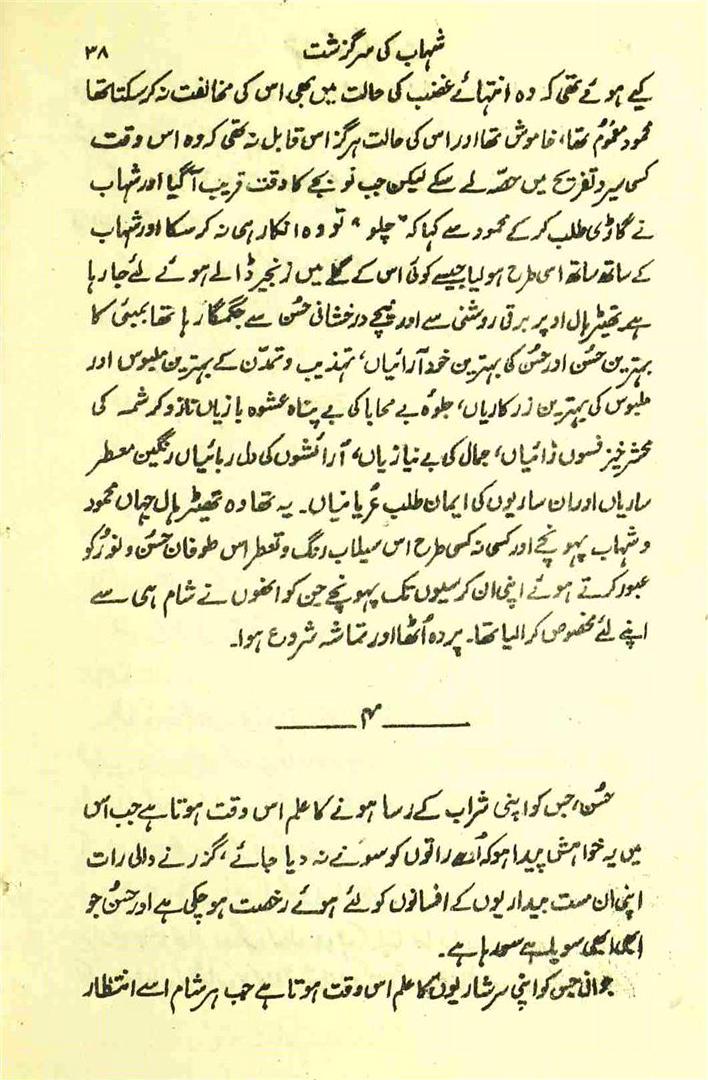 شہاب کی سرگزشت
۳۸
کیے ہوئے تھی کہ وہ انتہائے غضب کی حالت میں بھی اس کی مخالفت نہ کر سکتا تھا
محمود مغموم تھا، خاموش تھا اور اس کی حالت ہرگز اس قابل نہ تھی کہ وہ اس وقت
کسی سیر و تفریح میں حصّہ لے سکے لیکن جب نو بجے کا وقت قریب آگیا اور شہاب
نے گاڑی طلب کر کے محمود سے کہا کہ "چلو" تو وہ انکار ہی نہ کر سکا اور شہاب
کے ساتھ ساتھ اسی طرح ہولیا جیسے کوئی اس کے گلے میں زنجیر ڈالے ہوئے لئے جا رہا
ہے۔ تھیٹر ہال اوپر برقی روشنی سے اور نیچے درخشانی حُسن سے جگمگا رہا تھا بمبئی کا
بہترین حُسن اور حُسن کی بہترین خود آرائیاں، تہذیب و تمدّن کے بہترین ملبوس اور
ملبوس کی بہترین زرکاریاں، جلوہ بے محابا کی بے پناہ عشوہ بازیاں ناز و کرشمہ کی
محشر خیز فسوں زائیاں، جمال کی بے نیازیاں، آرائشوں کی دل ربائیاں رنگین معطر
ساریاں اور ان ساریوں کی ایمان طلب عُریانیاں۔ یہ تھا وہ تھیٹر ہال جہاں محمود
و شہاب پہونچے اور کسی نہ کسی طرح اس سیلاب رنگ و تعطر اس طوفان حسن و نور کو
عبور کرتے ہوئے اپنی ان کرسیوں تک پہونچے جن کو انھوں نے شام ہی سے
اپنے لئے مخصوص کرالیا تھا۔ پردہ اُٹھا اور تماشہ شروع ہوا۔
۴
حُسن، جس کو اپنی شراب کے رسا ہونے کا علم اس وقت ہوتا ہے جب اس
میں یہ خواہش پیدا ہو کہ اُسے راتوں کو سونے نہ دیا جائے، گزرنے والی رات
اپنی ان مست بیداریوں کے افسانوں کو لئے ہوئے رخصت ہو چکی ہے اور حُسن جو
ابھی ابھی سویا ہے سو رہا ہے۔
جوانی جس کو اپنی سرشاریوں کا علم اس وقت ہوتا ہے جب ہر شام اسے انتظار